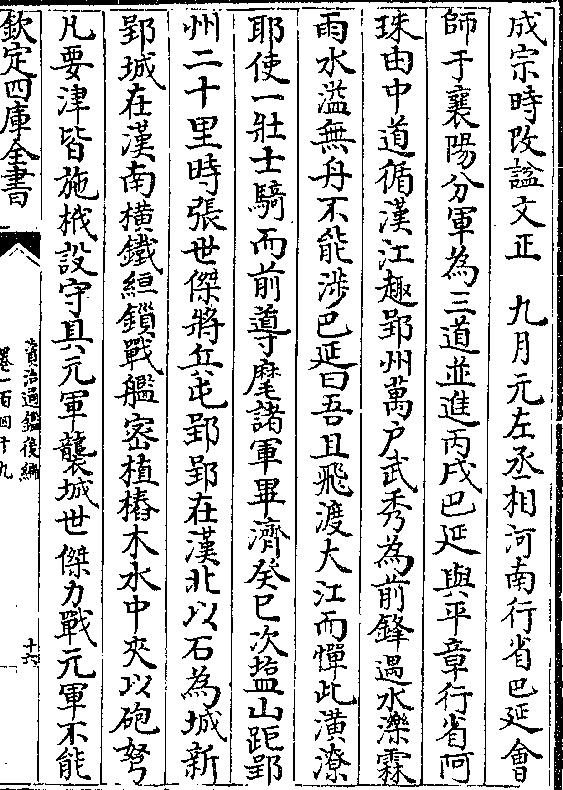 成宗時改諡文正　九月元左丞相河南行省巴延會
師于襄陽分軍為三道並進丙戌巴延與平章行省阿
珠由中道循漢江趣郢州萬戶武秀為前鋒遇水濼霖
雨水溢無舟不能渉巴延曰吾且飛渡大江而憚此潢潦
耶使一壯士騎而前導麾諸軍畢濟癸巳次塩山距郢
州二十里時張世傑將兵屯郢郢在漢北以石為城新
郢城在漢南橫鐵絙鎖戰艦密植樁木水中夾以砲弩
凡要津皆施栰設守具元軍襲城世傑力戰元軍不能
欽定四庫全書
資治通鑑後編
卷一百四十九
十六